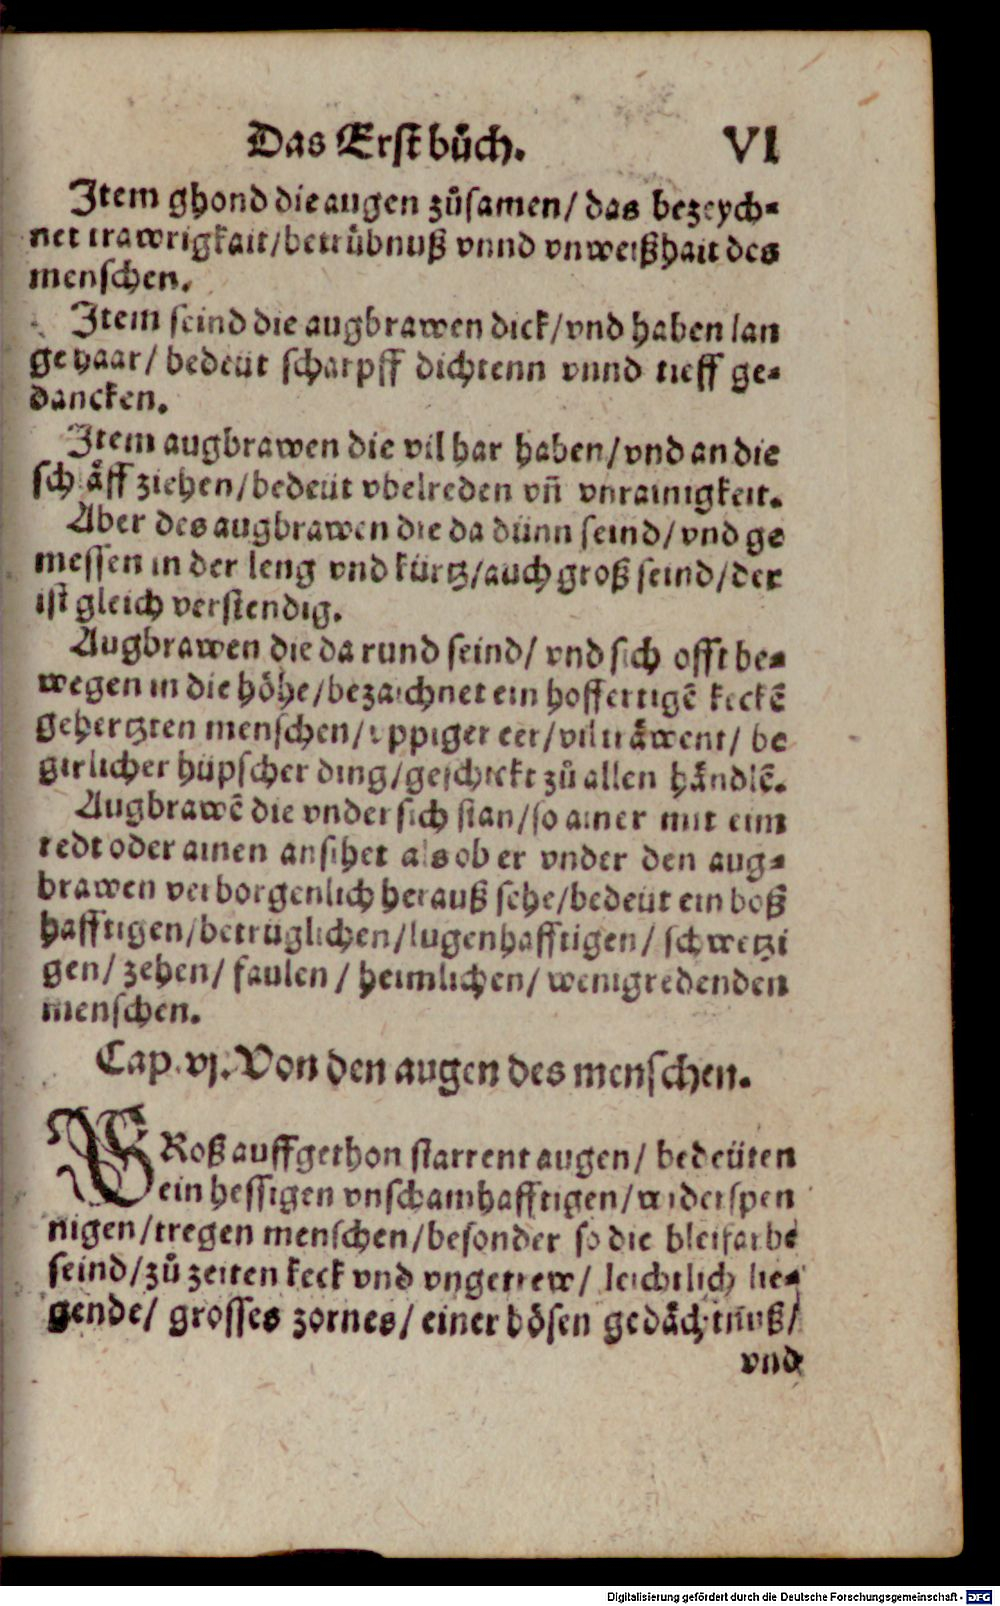 Das Erst bůch. VI
Item ghond die augen zůsamen/ das bezeych⸗
net trawrigkait/betrübnuß vnnd vnweißhait des
menschen.
Item seind die augbrawen dick/vnd haben lan
ge haar/ bedeüt scharpff dichtenn vnnd tieff ge⸗
dancken.
Item augbrawen die vil har haben/vnd an die
schläff ziehen/bedeüt vbelreden vñ vnrainigkeit.
Aber des augbrawen die da dünn seind/vnd ge
messen in der leng vnd kürtz/auch groß seind/der
ist gleich verstendig.
Augbrawen die da rund seind/ vnd sich offt be⸗
wegen in die höhe/bezaichnet ein hoffertigē keckē
gehertzten menschen/vppiger eer/vil träwent/ be
girlicher hüpscher ding/geschickt zů allen händlē.
Augbrawē die vnder sich stan/so ainer mit eim
redt oder ainen ansihet als ob er vnder den aug⸗
brawen verborgenlich herauß sehe/bedeüt ein boß
hafftigen/betrüglichen/lugenhafftigen/ schwetzi
gen/ zehen/ faulen/ heimlichen/ wenigredenden
menschen.
Cap. vj. Von den augen des menschen.
GRoß auffgethon starrent augen/ bedeüten
ein hessigen vnschamhafftigen/widerspen
nigen/tregen menschen/besonder so die bleifarbe
seind/zů zeiten keck vnd vngetrew/ leichtlich lie⸗
gende/ grosses zornes/ einer bösen gedächtnuß/
vnd
Digitalisierung gefördert durch die Deutsche Forschungsgemeinschaft - DFG